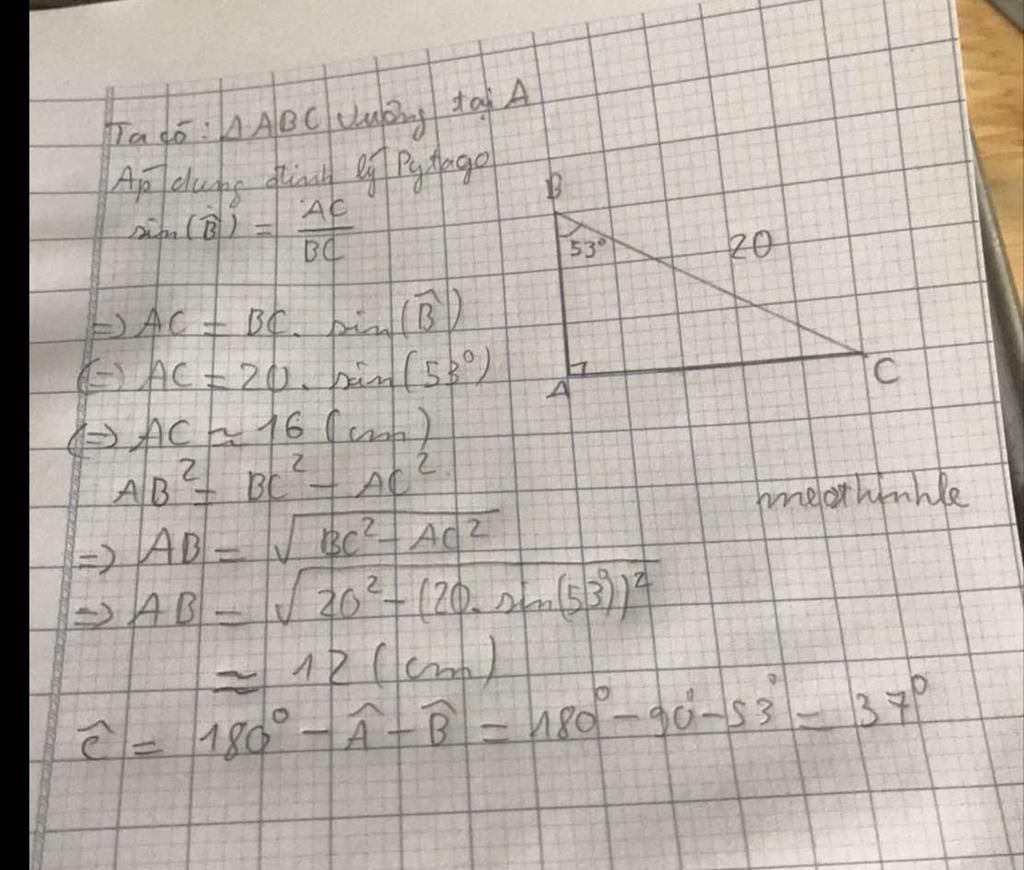 Ta có: ΔABC vuông tại A
Áp dụng định lý Pytago
sin(B̂) = AC/BC
=> AC = BC. sin(B̂)
(=) AC = 20. sin(53°)
(=) AC ≈ 16 (cm)
AB² = BC² - AC²
=> AB = √(BC² - AC²)
=> AB = √(20² - (20. sin(53°))²)
≈ 12 (cm)
Ĉ = 180° - Â - B̂ = 180° - 90° - 53° = 37°
B
53°
20
A
C